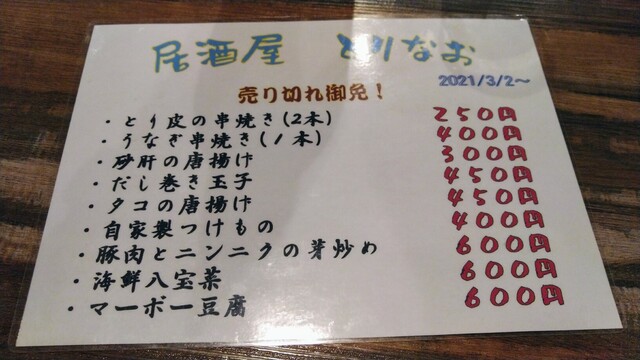 居酒屋 とりなお
2021/3/2〜
売り切れ御免！
・とり皮の串焼き(2本) 250円
・うなぎ串焼き(1本) 400円
・砂肝の唐揚げ 300円
・だし巻き玉子 450円
・タコの唐揚げ 450円
・自家製つけもの 400円
・豚肉とニンニクの芽炒め 600円
・海鮮八宝菜 600円
・マーボー豆腐 600円